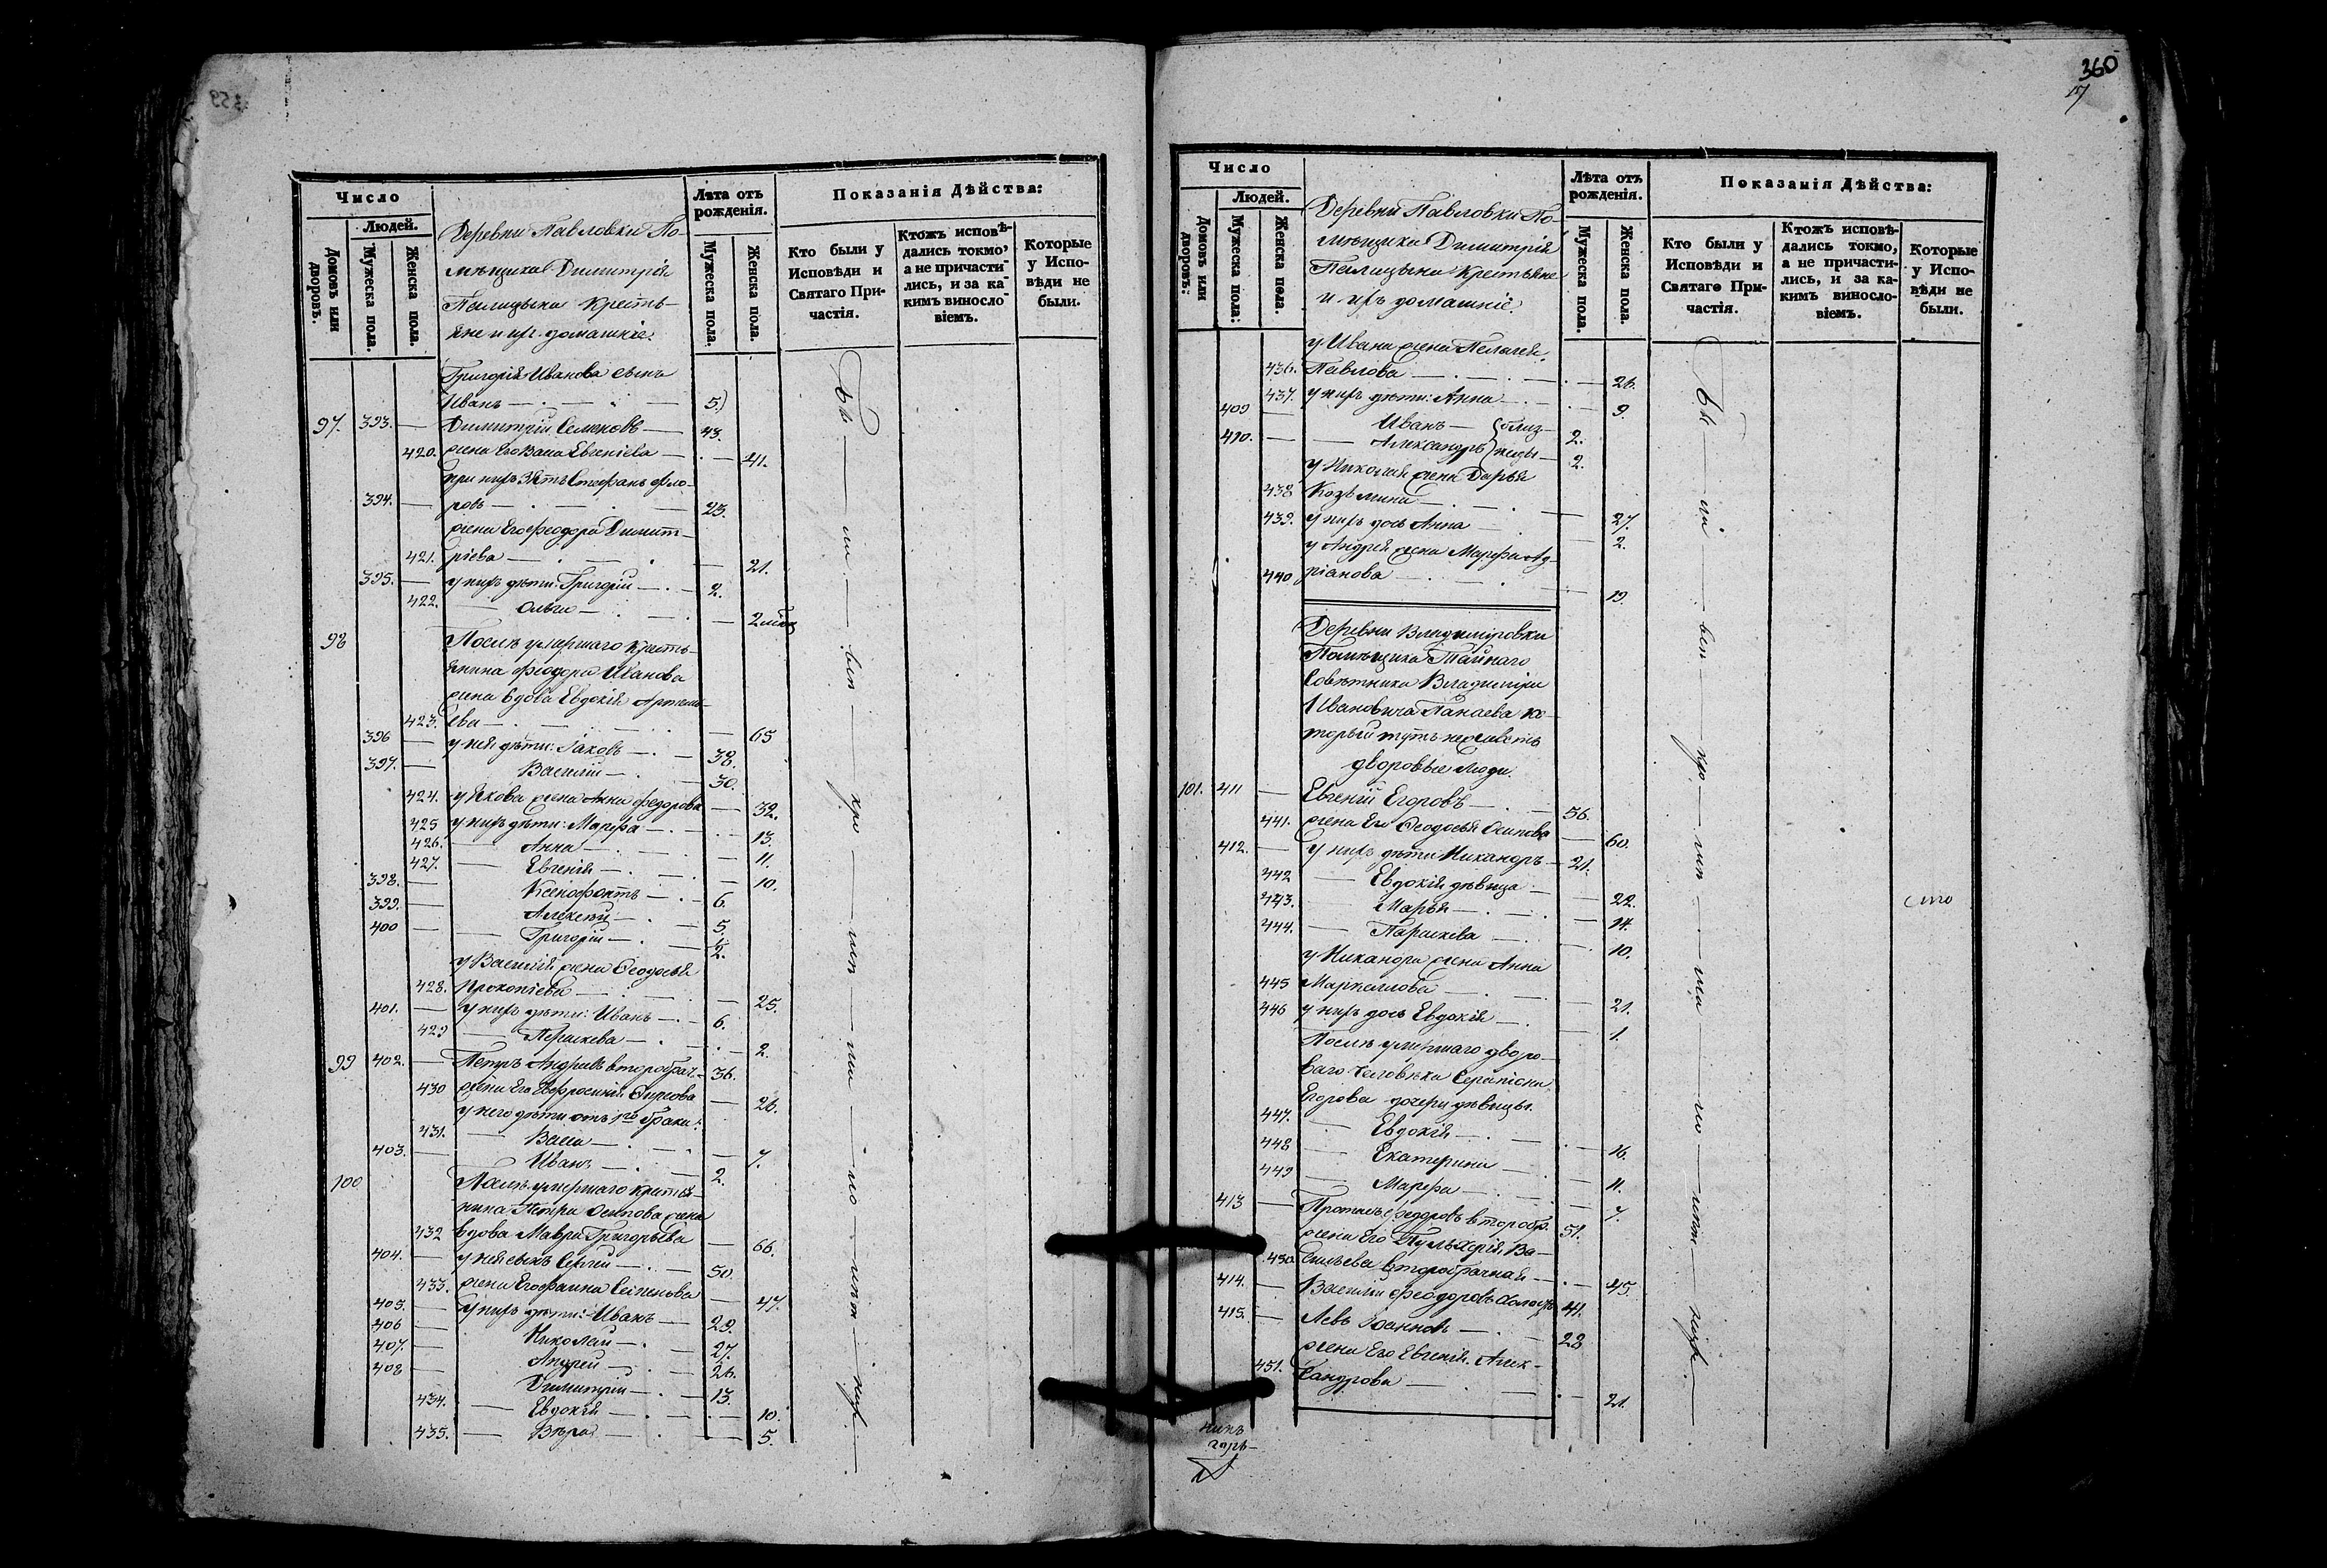 Число
Людей.
Домовъ или дворовъ.
Мужеска пола.
Женска пола.
Деревни Павловки По-
мѣщика Димитрія
Палицына Кресть-
яне и ихъ домашніе.
Лѣта отъ рожденія.
Мужеска пола.
Женска пола.
Показанія Дѣйства:
Кто были у Исповѣди и Святаго При-частія.
Ктожъ исповѣ-дались токмо, а не причасти-лись, и за ка-кимъ винословіемъ.
Которые у Испо-вѣди не были.
Григорія Иванова сынъ
Иванъ — 5.
97. 393. — Димитрій Семеновъ — 43.
420. жена Его Васса Евгеніева — 41.
при нихъ зять Стефанъ Фло-
394. — ровъ — 23.
жена Его Феодора Димит-
421. ріева — 21.
395. — у нихъ дѣти: Григорій — 2.
422. — Ольга — 2
98 Послѣ умершаго кресть-
янина Феодора Иванова
жена вдова Евдокія Артемь-
423. ева — 65
396 — у ней дѣти: Іаковъ — 38.
397. — Василій — 30.
424. у Якова жена Анна Федорова — 32.
425 у нихъ дѣти: Марфа — 13.
426. — Анна — 11.
427. — Евгенія — 10.
398. — Ксенофонтъ — 6.
399. — Алексѣй — 5.
400 — Григорій — ½.
у Василія жена Феодосья
428. Прокопіева — 25.
401. — у нихъ дѣти: Иванъ — 6.
429 — Параскева — 2.
99 402. — Петръ Андреевъ второбрач. — 36.
430 жена Его Евфросинія — 26.
у него дѣти отъ 1го брака:
431. — Васса — 7.
403. — Иванъ — 2.
100 Послѣ умершаго крестья-
нина Петра Осипова жена
432 вдова Мавра Григорьева — 66.
404. — у ней сынъ Сергей — 50.
433. жена Его Фаина Семенова — 47.
405. — у нихъ дѣти: Иванъ — 29.
406 — Николай — 27.
407. — Андрей — 26.
408 — Димитрій — 13.
434. — Евдокія — 10.
435. — Вѣра — 5.
360
17
Число
Людей.
Домовъ или дворовъ:
Мужеска пола:
Женска пола.
Деревни Павловки По-
мѣщика Димитрія
Палицына Крестьяне
и ихъ домашніе.
Лѣта отъ рожденія.
Мужеска пола.
Женска пола.
Показанія Дѣйства:
Кто были у Исповѣди и Святаго При-частія.
Ктожъ исповѣ-дались токмо, а не причасти-лись, и за ка-кимъ виносло-віемъ.
Которые у Испо-вѣди не были.
у Ивана жена Пелагея
436. Павлова — 26.
437. у нихъ дѣти: Анна — 9.
409 — Иванъ — близ- 2.
410. — Александръ нецы — 2.
у Николая жена Дарья
438 Козьмина — 27.
439. у нихъ дочь Анна — 2.
у Андрея жена Марфа Ад-
440 ріанова — 19.
Деревни Владиміровки
Помѣщика Тайнаго
Совѣтника Владиміра
Ивановича Панаева ко-
торый тутъ не живетъ
дворовые люди.
101. 411 — Евгеній Егоровъ — 56.
441. жена Его Феодосья Осипова — 60.
412. — у нихъ дѣти Никандръ — 21.
442 — Евдокія дѣвица — 22.
443. — Марья — 14.
444. — Параскева — 10.
у Никандра жена Анна
445 Маркеллова — 21.
446 у нихъ дочь Евдокія — 1.
Послѣ умершаго дворо-
ваго человѣка Серапіона
Егорова дочери дѣвицы.
447. — Евдокія — 16.
448 — Екатерина — 11.
449 — Марфа — 7.
413 — Феодоровъ второбр. 51.
жена Его Пульхерія Ва-
450. сильева второбрачная — 45.
414. — Василій Феодоровъ холостъ 41.
415. — Левъ Іоанновъ — 28
жена Его Евгенія Алек-
451. сандрова — 21.